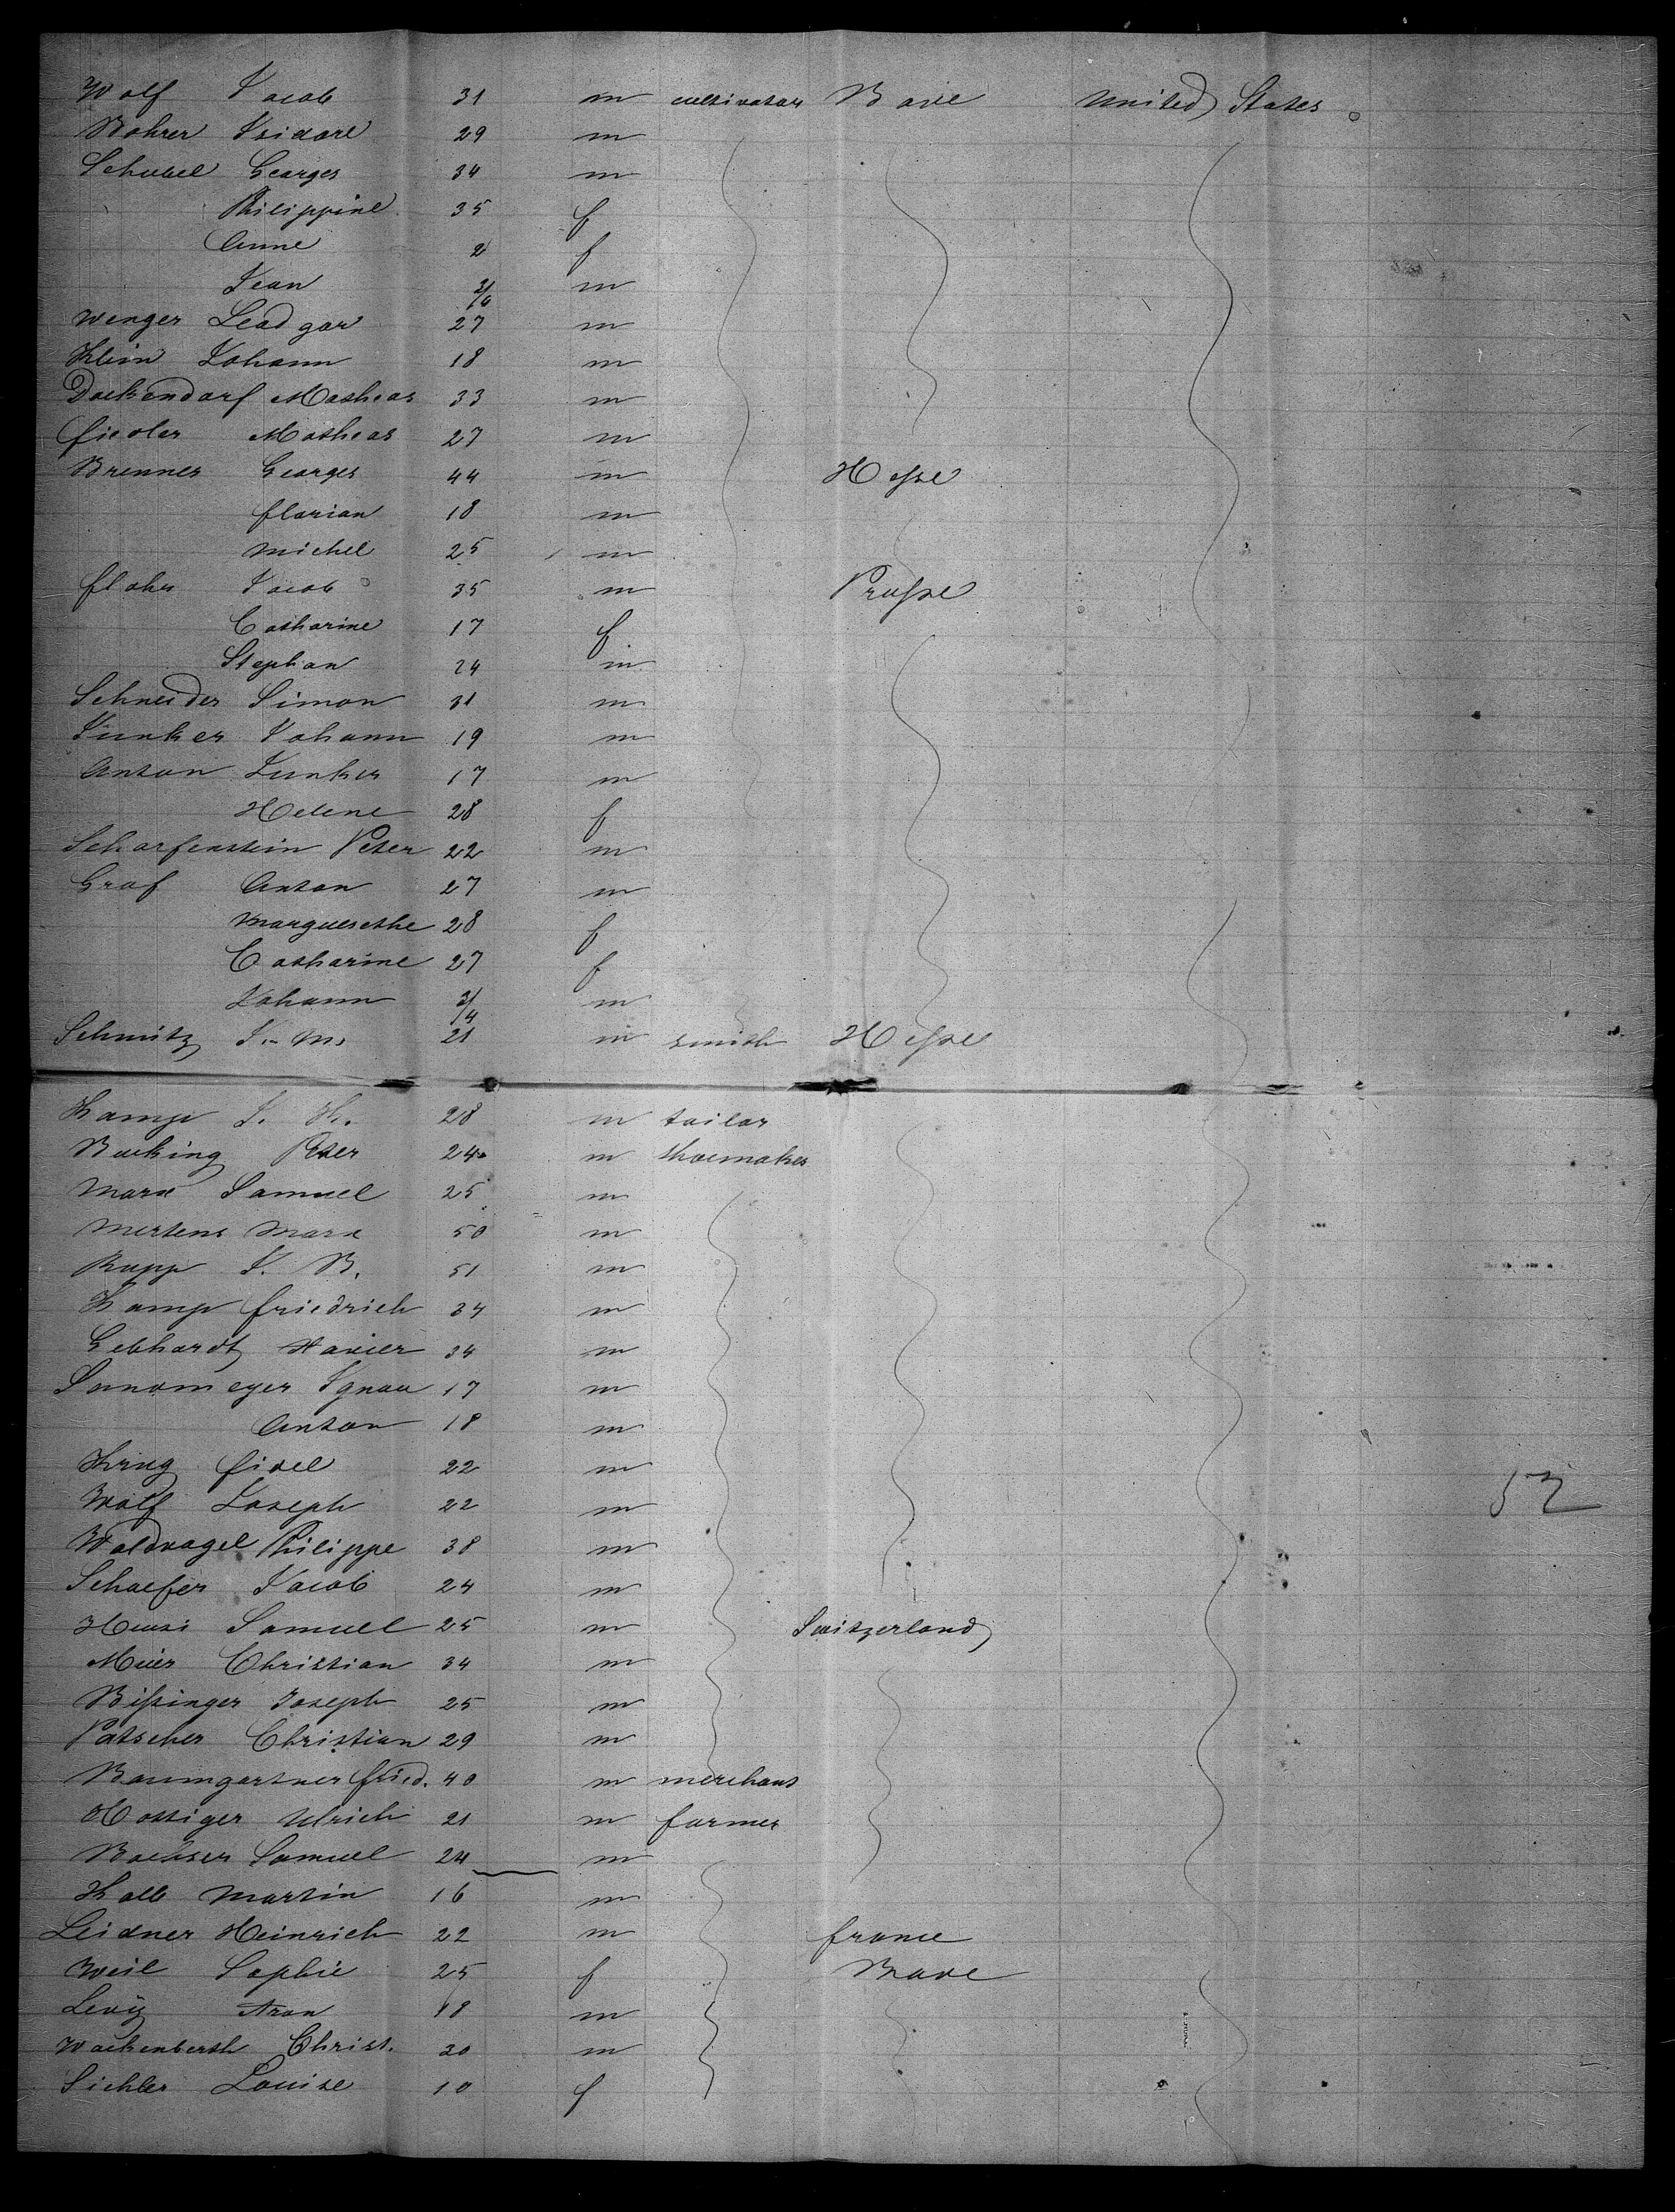 Wolf Jacob 31 m cultivator Bave United States
Rohrer Isidore 29 m
Schwel Georges 34 m
Philippine 35 f
Anne 2 f
Jean 3/4 m
Wenger Leodgar 27 m
Klein Johann 18 m
Dockendorf Matheas 33 m
fiedler Matheas 27 m
Brenner Georges 44 m Hesse
florian 18 m
Michel 25 m
flohr Jacob 35 m Prusse
Catharine 17 f
Stephan 24 m
Schneider Simon 31 m
Junker Johann 19 m
Anton Junker 17 m
Helene 28 f
Scharfenstein Peter 22 m
Graf Anton 27 m
Marguerethe 28 f
Catharine 27 f
Johann 3/4 m
Schmitz J. M. 21 m smith Hesse
Kamp J. H. 28 m tailor
Bucking Peter 24 m shoemaker
Marx Samuel 25 m
Mertens Marx 50 m
Rupp J. B. 51 m
Kamp friedrich 34 m
Gebhardt Xavier 34 m
Ignaz 17 m
Anton 18 m
Krug fidel 22 m
Wolf Joseph 22 m 52
Waldvogel Philippe 38 m
Schaefer Jacob 24 m
Heusi Samuel 25 m Switzerland
Meier Christian 34 m
Bissinger Joseph 25 m
Patscher Christian 29 m
Baumgartner fried. 40 m merchant
Hottiger Ulrich 21 m farmer
Bachser Samuel 24 m
Kalb Martin 16 m
Leidner Heinrich 22 m france
Weil Sophie 25 f Bave
Levy Aron 18 m
Wackenberth Christ. 30 m
Sichler Louise 10 f